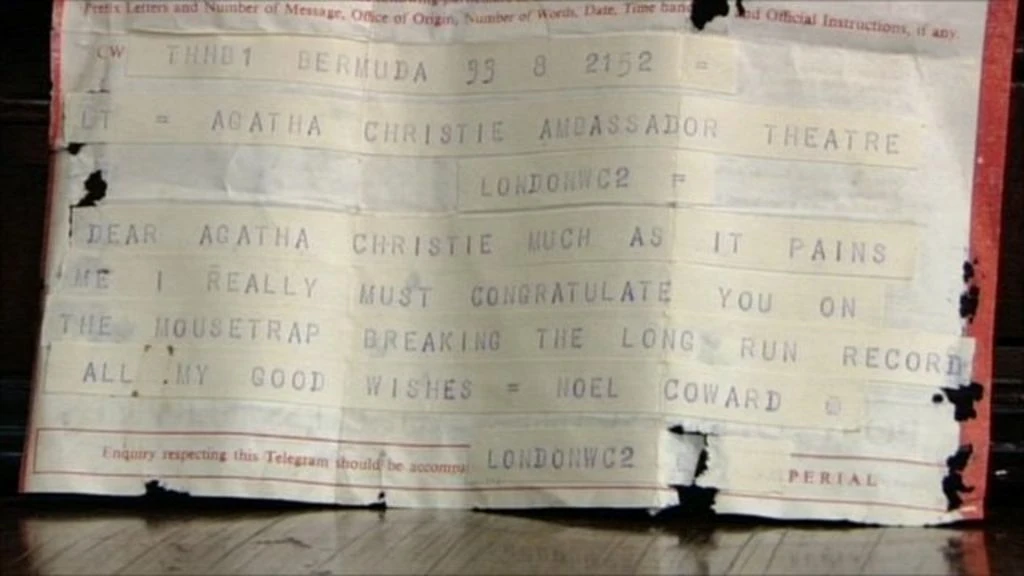 Prefix Letters and Number of Message, Office of Origin, Number of Words, Date, Time hand and Official Instructions, if any.
CW THNB1 BERMUDA 99 8 2152 =
LT = AGATHA CHRISTIE AMBASSADOR THEATRE
LONDONWC2 =
DEAR AGATHA CHRISTIE MUCH AS IT PAINS
ME I REALLY MUST CONGRATULATE YOU ON
THE MOUSETRAP BREAKING THE LONG RUN RECORD
ALL MY GOOD WISHES = NOEL COWARD
Enquiry respecting this Telegram should be accompa LONDONWC2 PERIAL